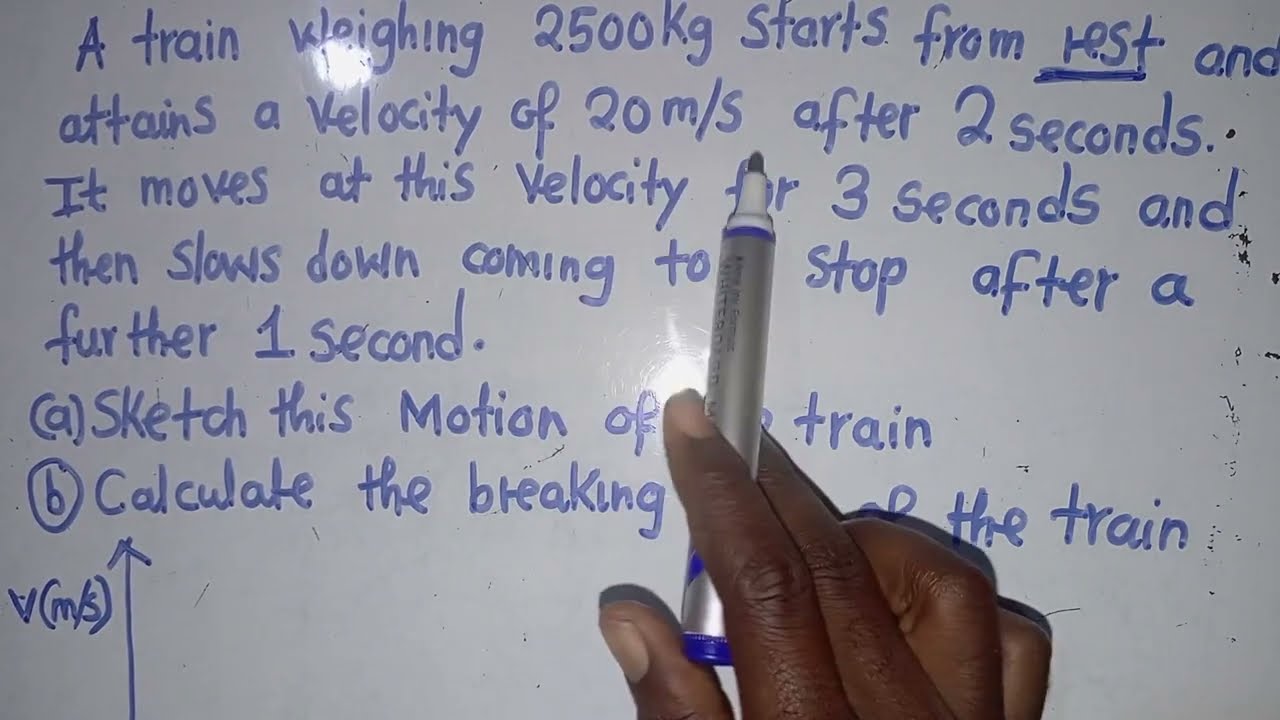 A train weighing 2500Kg starts from rest and
attains a velocity of 20m/s after 2 seconds.
It moves at this velocity for 3 seconds and
then slows down coming to stop after a
further 1 second.
(a) Sketch this Motion of train
(b) Calculate the breaking of the train
V(m/s)